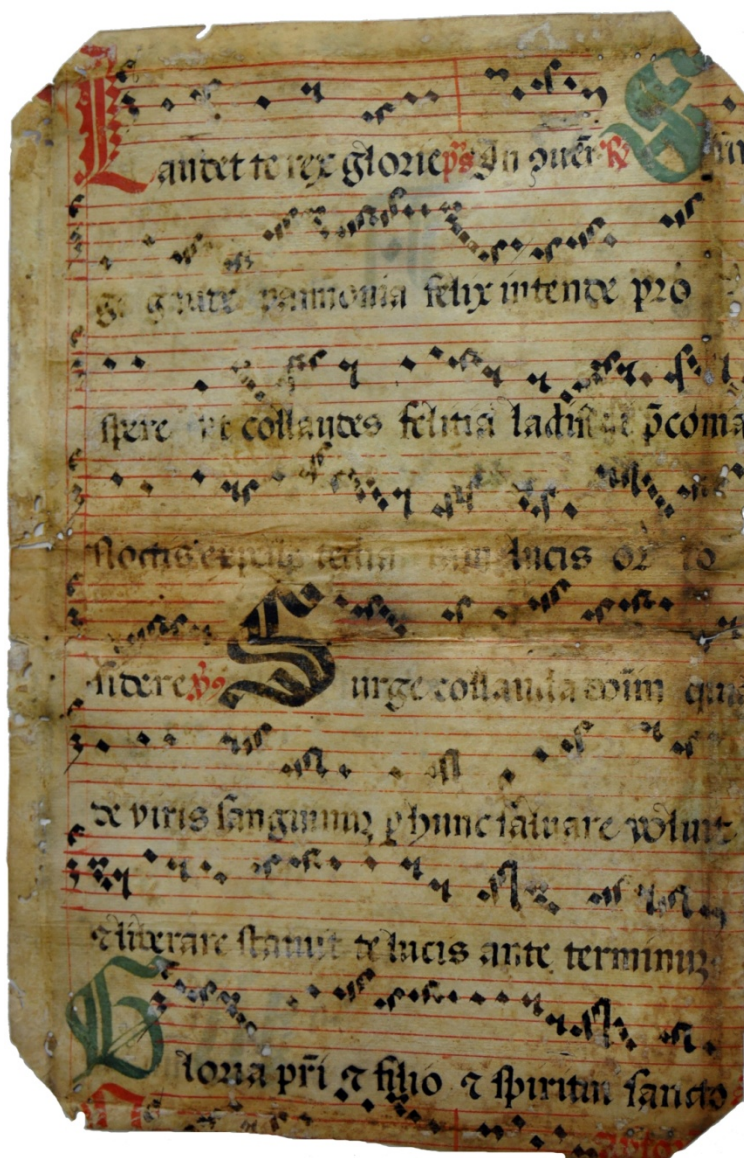 Laudet te rex glorie ps In ōuer̄ R E
ge gaude pannonia felix intende pro
spere ut collaudes felitia ladisl p̄coma
Noctis lucis or to
sidere vs Surge collauda doīm qui
de viris sanguinum ꝑ hunc saluare voluit
⁊ liberare statuit te lucis ante terminum
Gloria pr̄i ⁊ filio ⁊ spiritui sancto